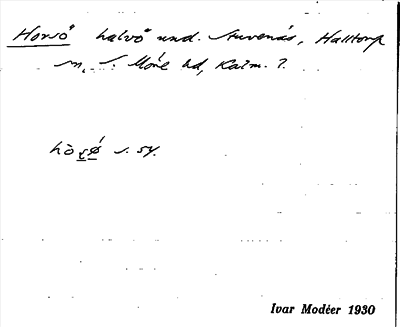 Horsö halvö und. Auvenäs, Halltorp
sn, S. Möre hd, Kalm. l.
hòsø s. sy.
Ivar Modéer 1930